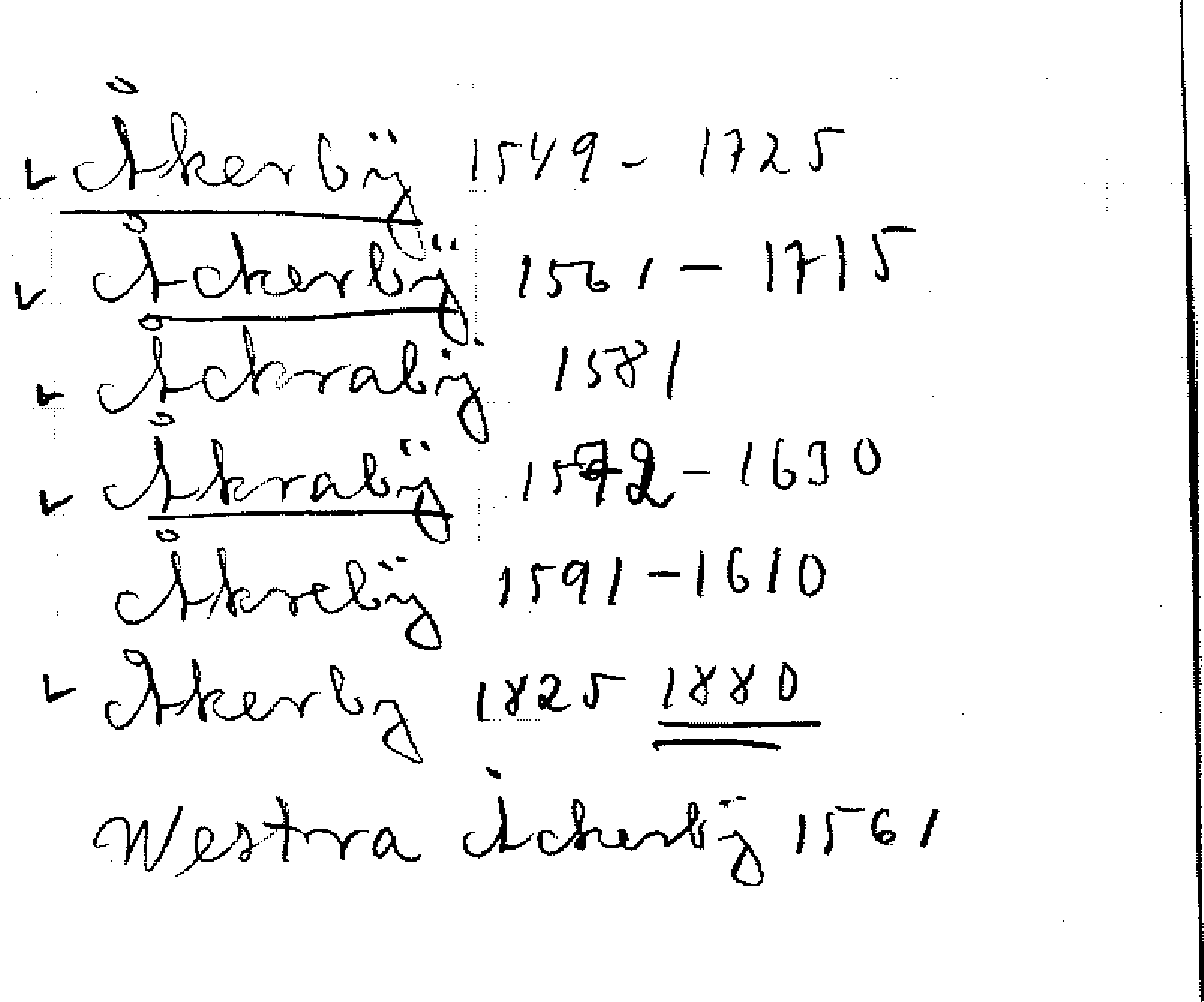 ✓ Åkerbÿ 1549 - 1725
✓ Åckerbÿ 1561 - 1715
✓ Åckrabÿ 1581
✓ Åkrabÿ 1572 - 1630
Åkrebÿ 1591 - 1610
✓ Åkerby 1825 1880
Westra Åckerbÿ 1561